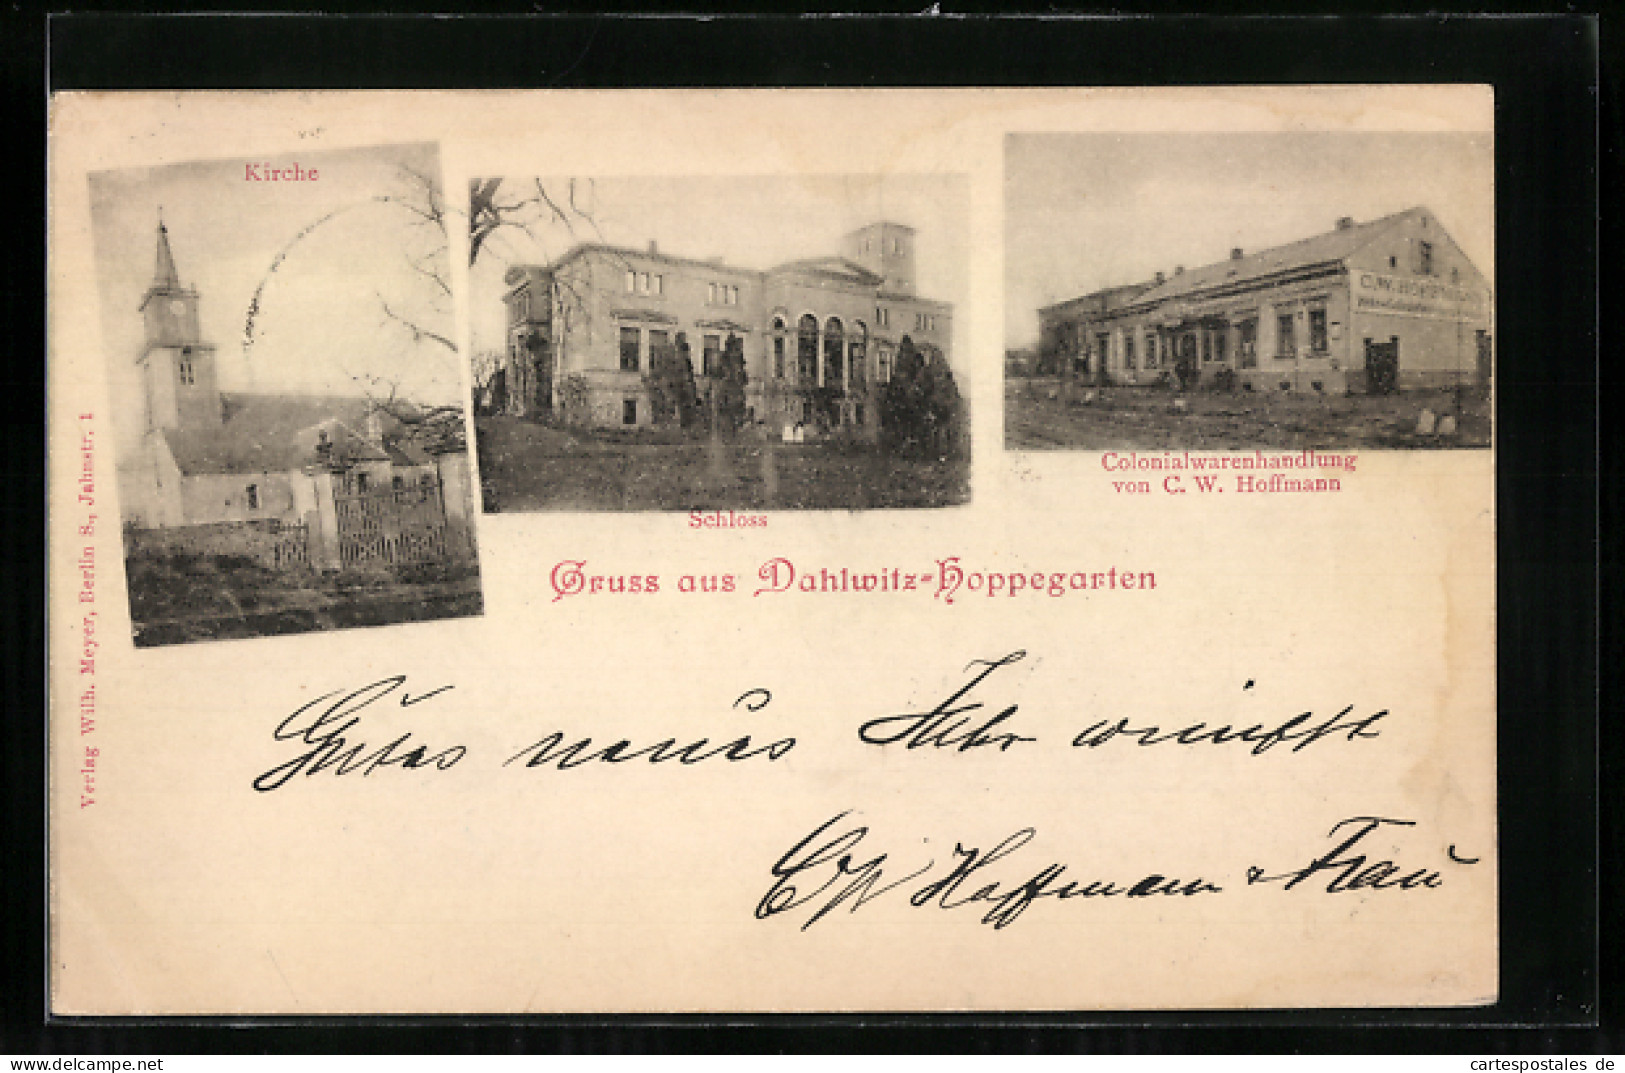 Kirche
Schloss
C.W. HOFFMANN
Colonialwarenhandlung
von C. W. Hoffmann
Gruss aus Dahlwitz-Hoppegarten
Verlag Wilh. Meyer, Berlin S., Jahnstr. 1
Gutes neues Jahr wünscht
Hoffmann & Frau
www.delcampe.net
cartespostales de